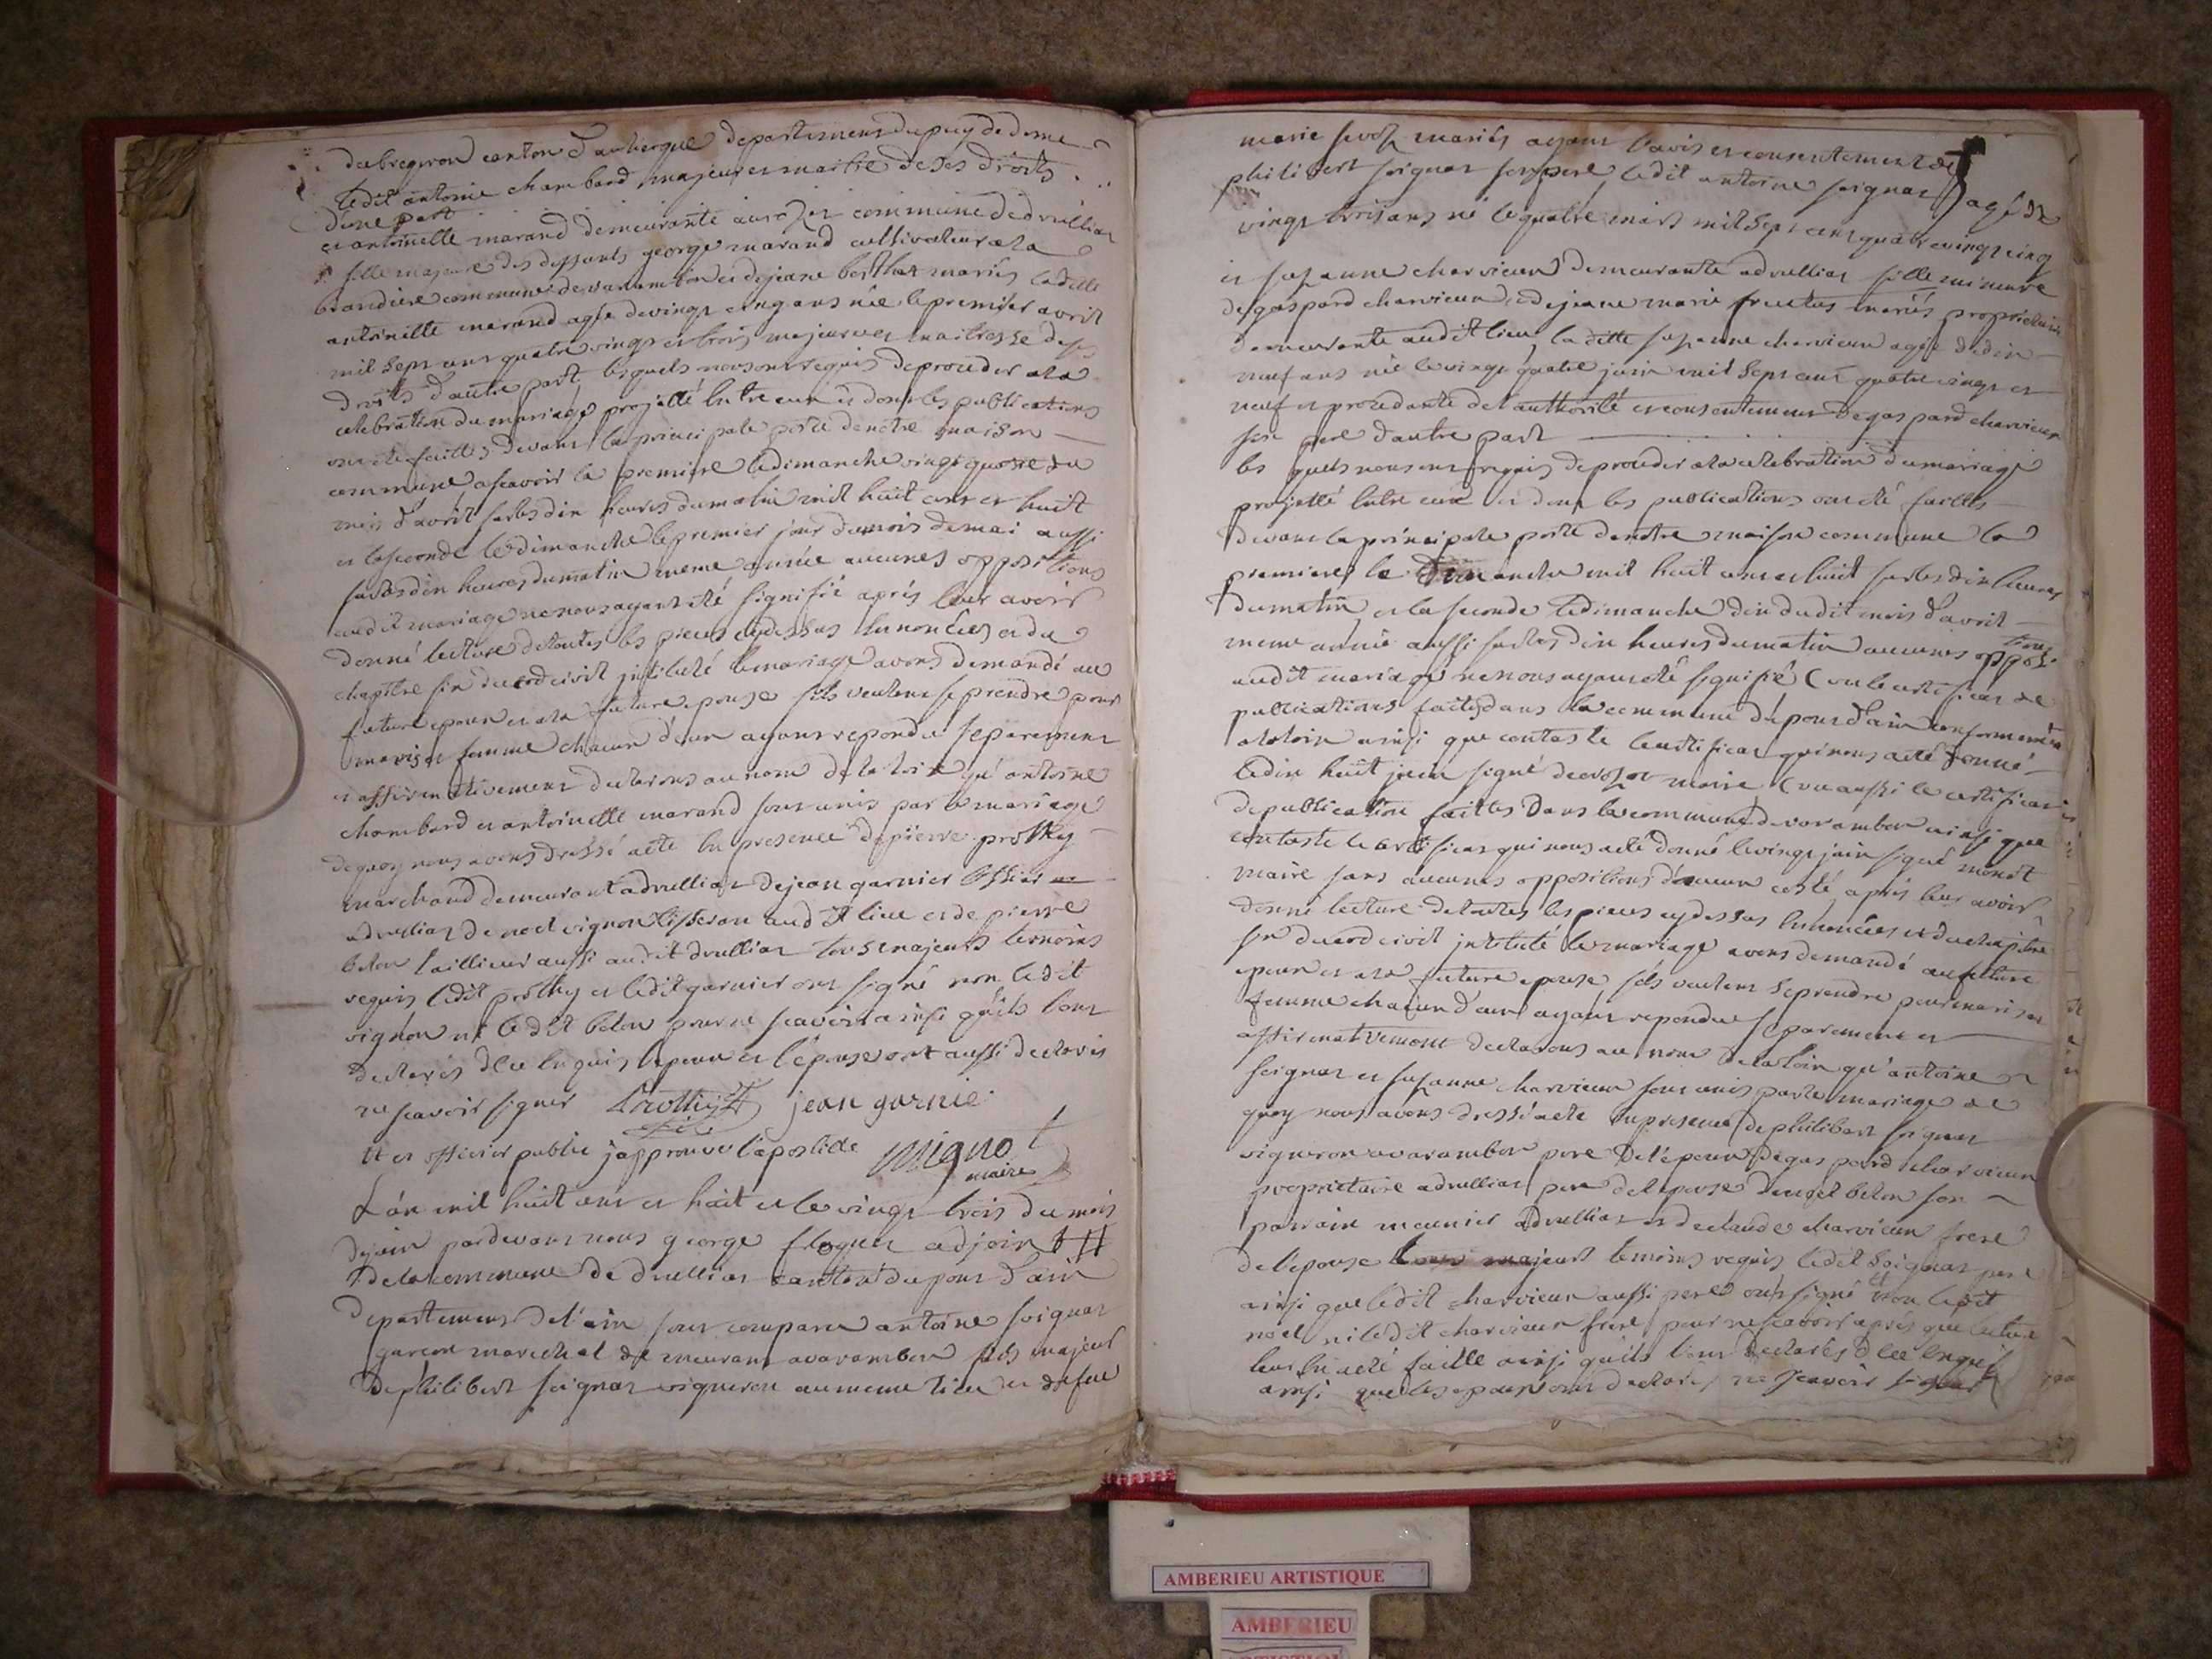 departement du puy de dome
ledit antoine chambard majeur et maitre de ses droits
d'une part
et antoinette marand demeurante commune de druilliat
fille majeure des deffunts george marand cultivateur a la
commune de varambon et de jeane maries laditte
antoinette marand agée de vingt cinq ans née le premier avril
mil sept cent quatre vingt et trois majeure et maitresse de ses
droits d'autre part lesquels nous ont requis de proceder a la
celebration du mariage projetté entre eux et dont les publications
ont été faittes devant la principale porte de notre maison
commune a scavoir la premiere le dimanche vingt quatre du
mois d'avril sur les dix heures du matin mil huit cent et huit
et la seconde le dimanche le premier jour du mois de mai aussi
sur les dix heures du matin meme année aucunes oppositions
audit mariage ne nous ayant été signifié après leur avoir
donné lecture de toutes les pieces cy dessus enoncées et du
chapitre six du cod civil intitulé le mariage avons demandé au
futur epoux et a la future epouse s'ils veulent se prendre pour
mari et femme chacun d'eux ayant repondu separement
et affirmativement declarons au nom de la loi qu'antoine
chambard et antoinette marand sont unis par le mariage
de quoy nous avons dressé acte en presence de pierre prothy
marchand demeurant a druilliat de jean garnier
a druilliat de noel vignon tisseran audit lieu et de pierre
belon taillieur aussi audit druilliat tous majeurs temoins
requis ledit prothy et ledit garnier ont signé non ledit
vignon ni ledit belon pour ne scavoir ainsi qu'ils l'ont
declarés de ce enquis l'epoux et l'épouse ont aussi declarés
ne scavoir signer Prothy jean garnié
et officier public j'approuve l'apostille Mignot
maire
L'an mil huit cent et huit et le vingt trois du mois
de juin pardevant nous george floquet adjoint
de la commune de druilliat canton du pont d'ain
departement de l'ain sont comparu antoine soignat
garcon marechal demeurant a varambon fils majeur
de philibert soignat vigneron au meme lieu et de feue
marie mariés ayant l'avis et consentement de
philibert soignat son pere ledit antoine soignat agé de
vingt trois ans né le quatre mars mil sept cent quatre vingt cinq
et suzanne charvieux demeurante a druilliat fille mineure
de gaspard charvieux et de jeane marie mariés proprietaires
demeurante audit lieu la ditte suzanne charvieux agée de dix
neuf ans née le vingt quatre juin mil sept cent quatre vingt et
neuf et procedante de l'authorité et consentement de gaspard charvieux
son pere d'autre part
les quels nous ont requis de proceder a la celebration du mariage
projetté entre eux et dont les publications ont été faittes
devant la principale porte de notre maison commune la
premiere le dimanche mil huit cent et huit sur les dix heures
du matin et la seconde le dimanche dix dudit mois d'avril
meme année aussi sur les dix heures du matin aucunes oppositions
audit mariage ne nous ayant été signifié (vu le certificat de
publications faites dans la commune du pont d'ain conformement a
la loix ainsi que contaste le certificat qui nous a été donné
le dix huit juin signé maire (vu aussi le certificat
de publication faittes dans la commune de varambon ainsi que
contaste le certificat qui nous a été donné le vingt juin signé monet
maire sans aucunes oppositions d'aucun costé après leur avoir
donné lecture de toutes les pieces cy dessus enoncées et du chapitre
six du cod civil intitulé le mariage avons demandé au future
epoux et a la future epouse s'ils veulent se prendre pour mari et
femme chacun d'eux ayant repondu separement et
affirmativement declarons au nom de la loix qu'antoine
soignat et suzanne charvieux sont unis par le mariage de
quoy nous avons dressé acte en presence de philibert soignat
vigneron a varambon pere de l'epoux de gaspard charvieux
proprietaire a druilliat pere de l'epouse de noel belon son
parrain meunier a druilliat et de claude charvieux frere
de l'epouse tous majeurs temoins requis ledit soignat pere
ainsi que ledit charvieux aussi pere ont signé non ledit
noel ni ledit charvieux frere pour ne scavoir après que lecture
leur en a été faitte ainsi qu'ils l'ont declarés de ce enquis
ainsi que les epoux ont declarés ne scavoir signer
AMBERIEU ARTISTIQUE
AMBERIEU